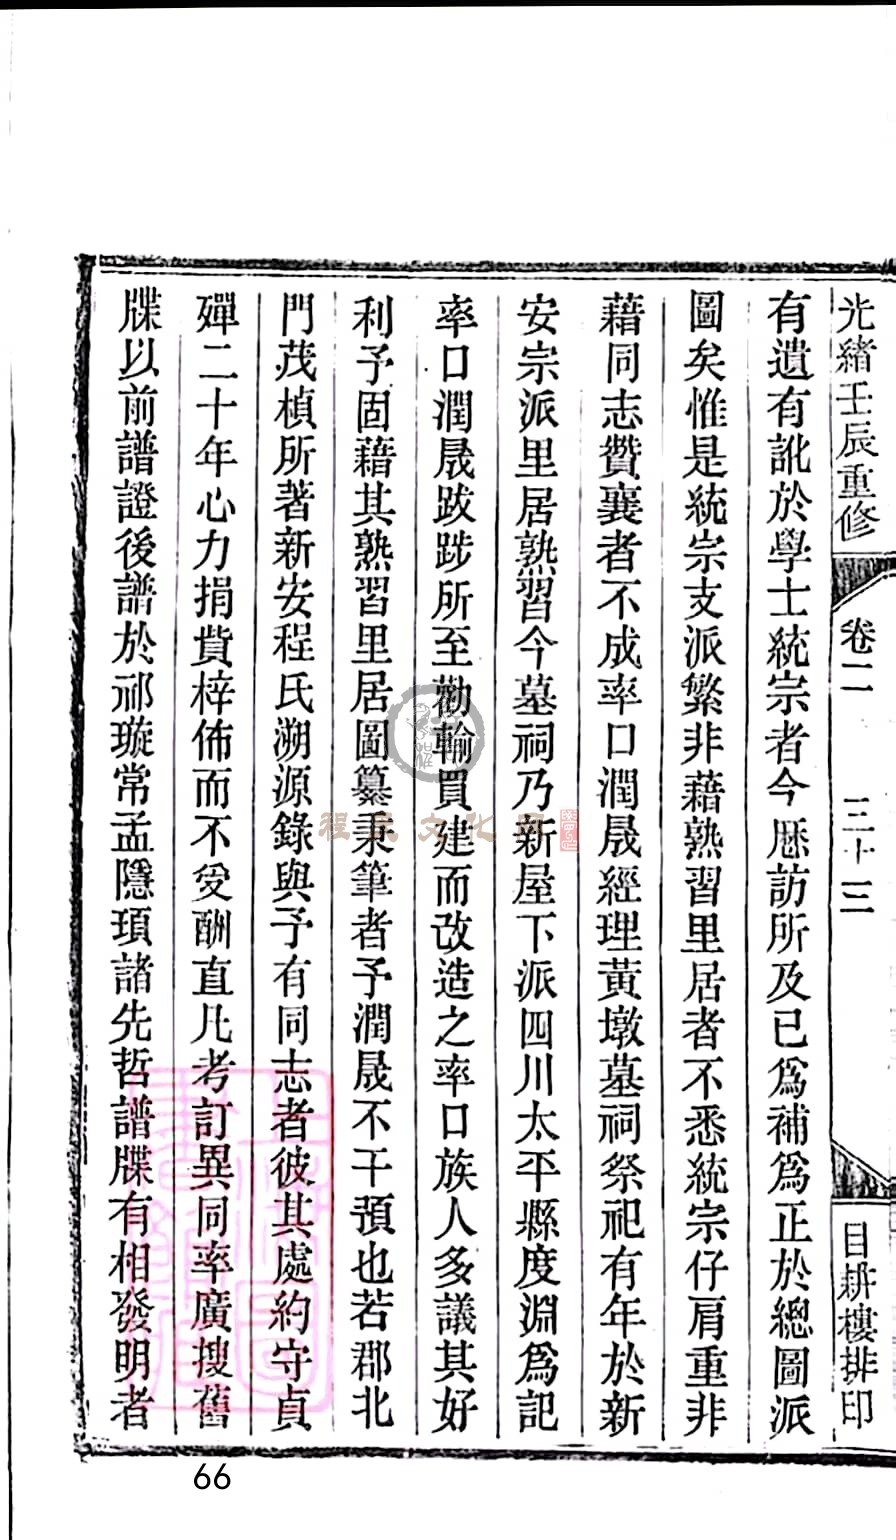 光緒壬辰重修
卷二
三十三
目耕樓排印
有遺有訛於學士統宗者今歷訪所及已爲補爲正於總圖派
圖矣惟是統宗支派繁非藉熟習里居者不悉統宗仔肩重非
藉同志贊襄者不成率口潤晟經理黃墩墓祠祭祀有年於新
安宗派里居熟習今墓祠乃新屋下派四川太平縣度淵爲記
率口潤晟跋踄所至勸輸買建而改造之率口族人多議其好
利予固藉其熟習里居圖纂秉筆者予潤晟不干預也若郡北
門茂楨所著新安程氏溯源錄與予有同志者彼其處約守貞
殫二十年心力捐貲梓佈而不受酬直凡考訂異同率廣搜舊
牒以前譜證後譜於祁璇常孟隱頊諸先哲譜牒有相發明者
程氏文化网
66